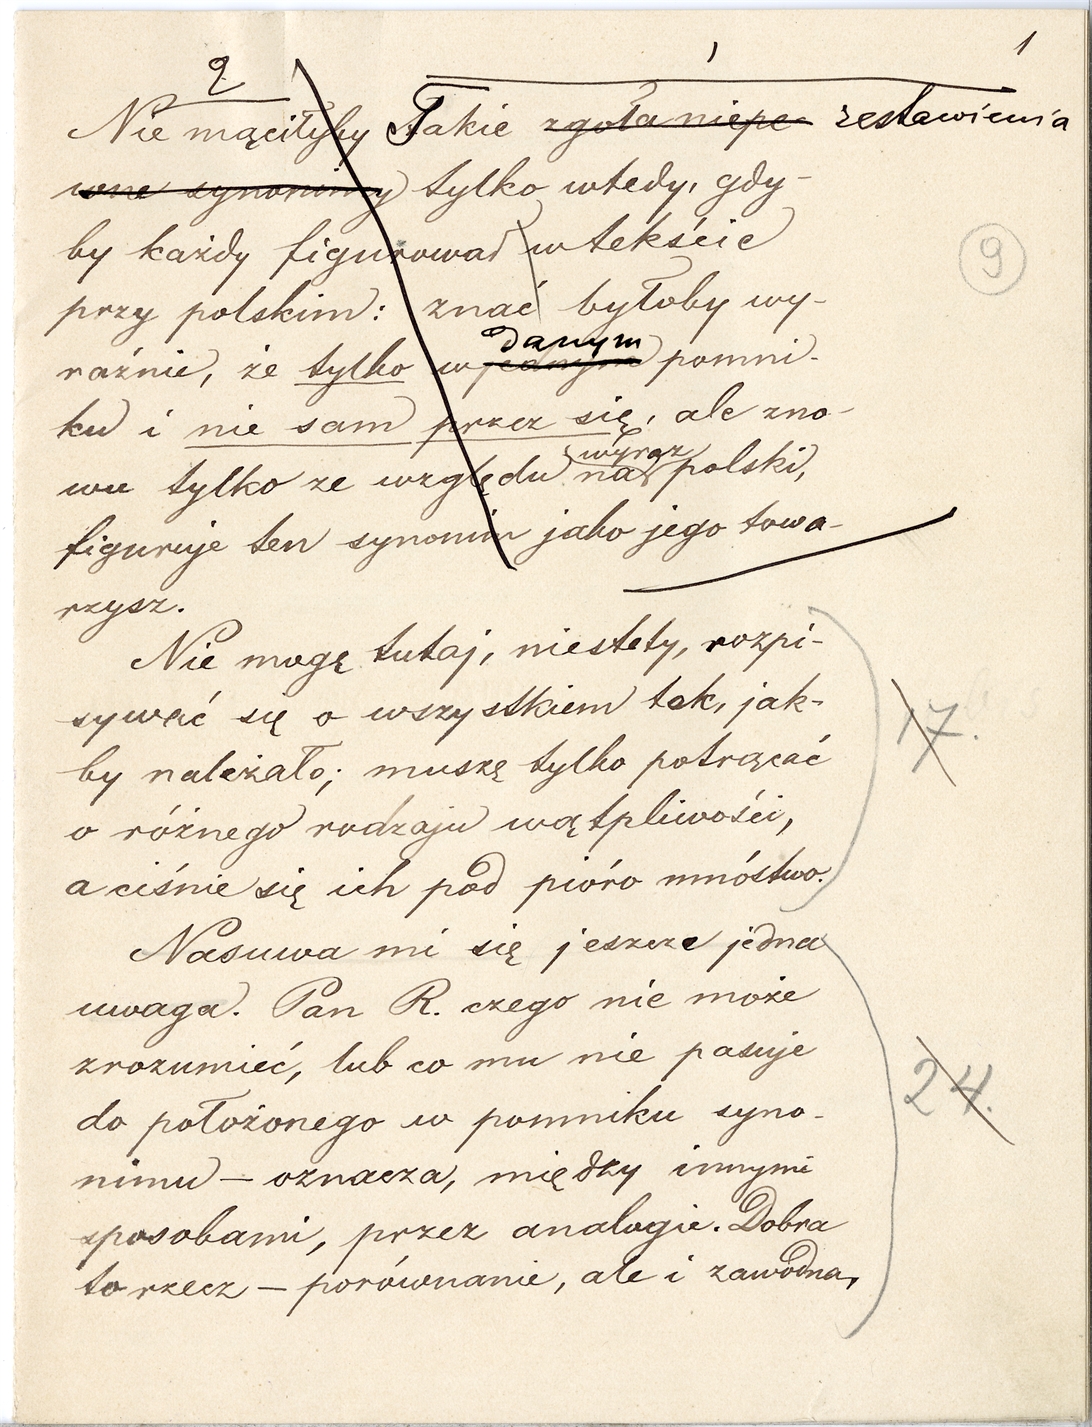 2 1 1
Nie mąciłyby Takie zgoła niepe- zestawienia
wne synonimy tylko wtedy, gdy-
by każdy figurował w tekście
przy polskim: znać byłoby wy-
raźnie, że tylko w jednym danym pomni-
ku i nie sam przez się, ale zno-
wu tylko ze względu na wyraz polski,
figuruje ten synonim jako jego towa-
rzysz.
9
Nie mogę tutaj, niestety, rozpi-
sywać się o wszystkiem tak, jak-
by należało; muszę tylko potrącać
o różnego rodzaju wątpliwości,
a ciśnie się ich pod pióro mnóstwo.
17.
Nasuwa mi się jeszcze jedna
uwaga. Pan R. czego nie może
zrozumieć, lub co mu nie pasuje
do położonego w pomniku syno-
nimu — oznacza, między innymi
sposobami, przez analogie. Dobra
to rzecz — porównanie, ale i zawodna,
24.